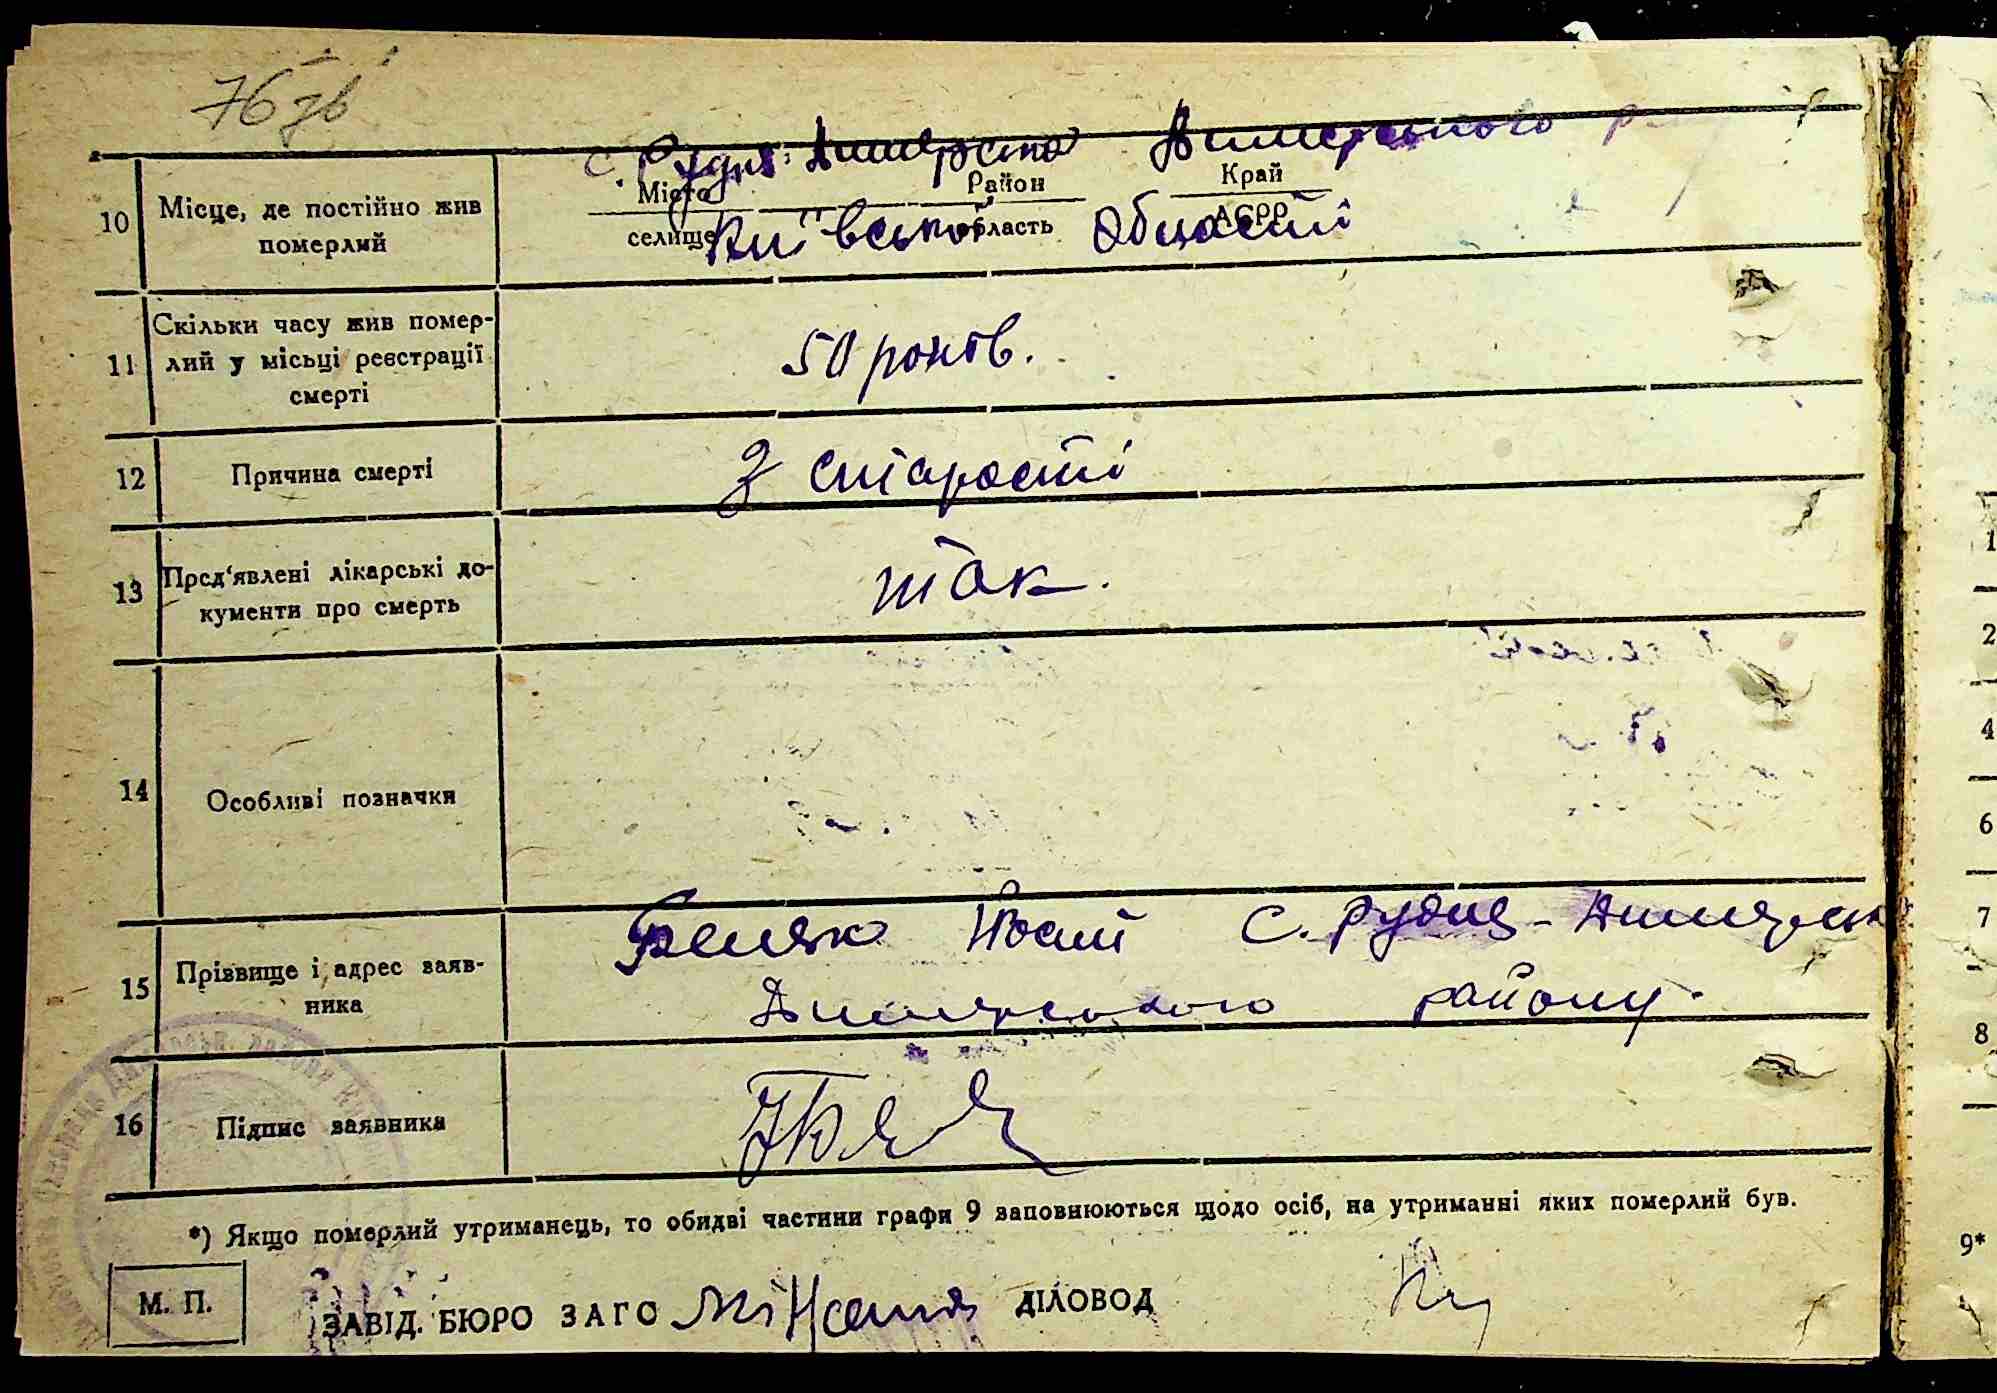 76 зв
с. Рудня-Димерська Димерського
10 Місце, де постійно жив померлий
Місто Район Край
селище область АСРР
Київської області
11 Скільки часу жив помер-
лий у місьці реєстрації
смерті
50 років.
12 Причина смерті
З старости
13 Пред'явлені лікарські до-
кументи про смерть
так.
14 Особливі позначки
15 Прізвище і адрес заяв-
ника
с. Рудня-Димерськ
Димерського району.
16 Підпис заявника
*) Якщо померлий утриманець, то обидві частини графи 9 заповнюються щодо осіб, на утриманні яких померлий був.
М. П.
ЗАВІД. БЮРО ЗАГО ДІЛОВОД
1
2
4
6
7
8
9*